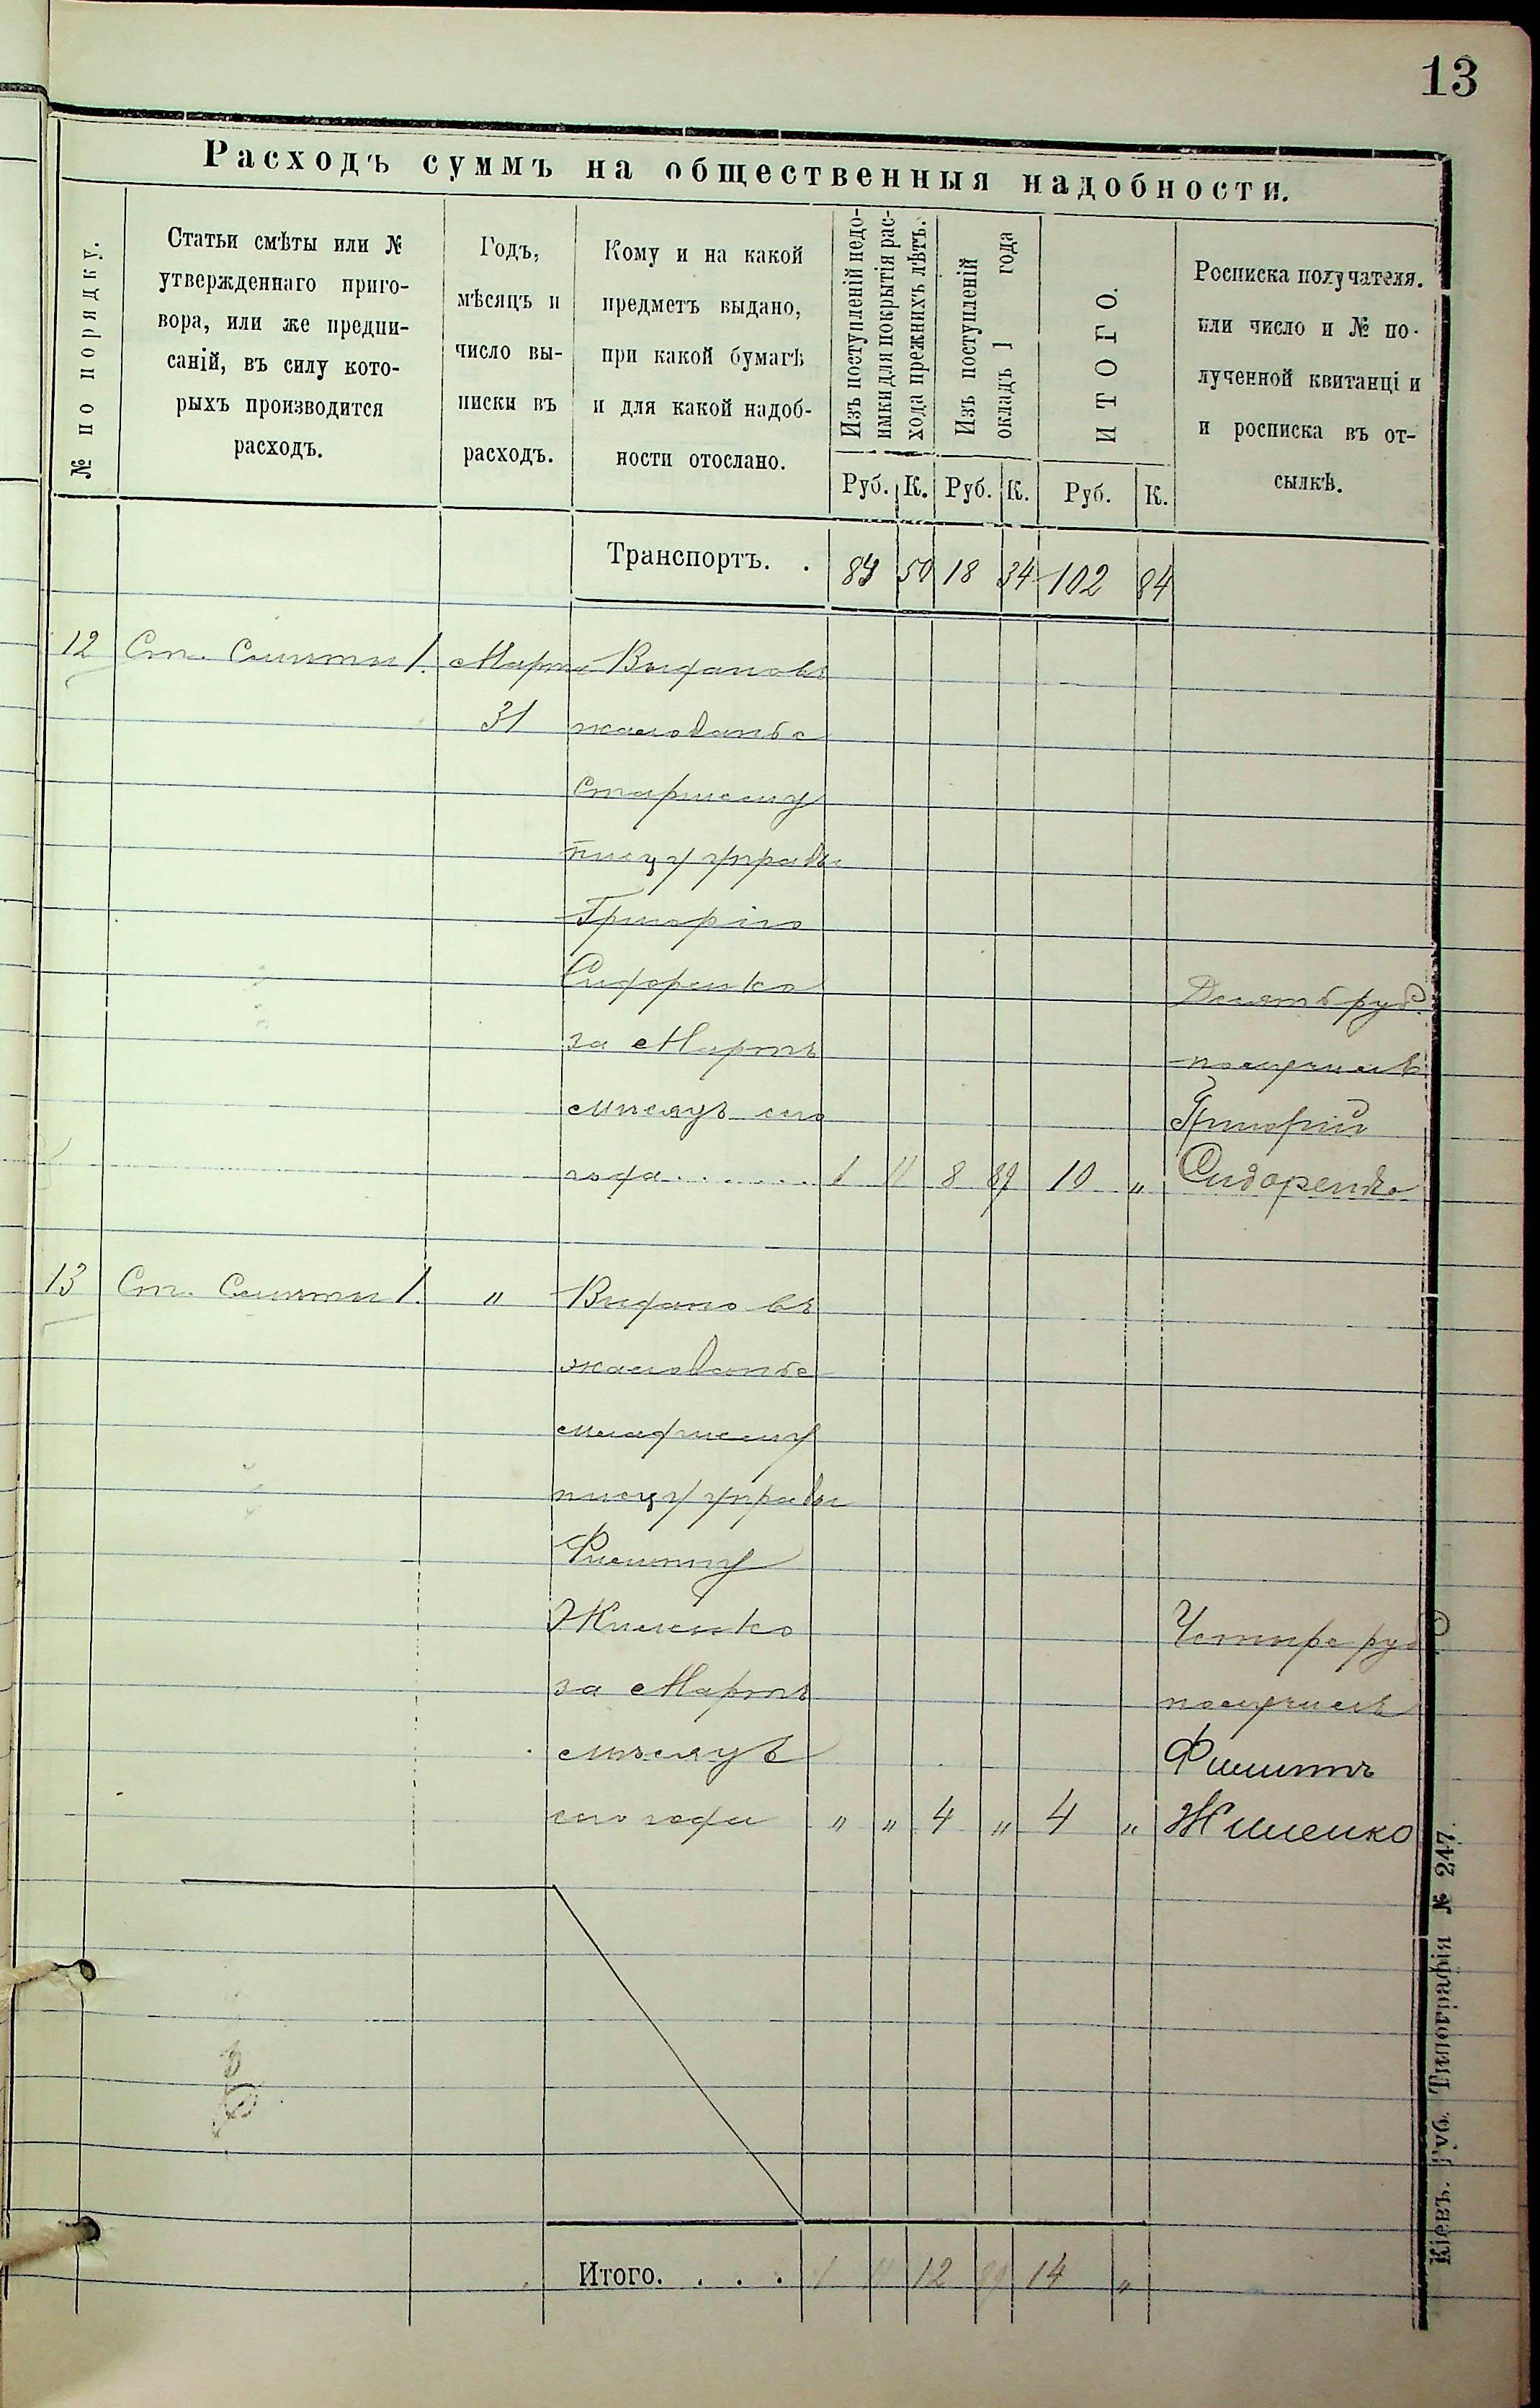 13
Расходъ суммъ на общественныя надобности.
№ по порядку.
Статьи смѣты или №
утвержденнаго приго-
вора, или же предпи-
саній, въ силу кото-
рыхъ производится
расходъ.
Годъ,
мѣсяцъ и
число вы-
писки въ
расходъ.
Кому и на какой
предметъ выдано,
при какой бумагѣ
и для какой надоб-
ности отослано.
Изъ поступленій недо-
имки для покрытія рас-
хода прежнихъ лѣтъ.
Изъ поступленій
окладъ 1 года
ИТОГО.
Росписка получателя.
или число и № по-
лученной квитанці и
и росписка въ от-
сылкѣ.
Руб. К. Руб. К. Руб. К.
Транспортъ. . 50 18 34 102 84
12 Ст. Смѣты 1. Марта Выдано въ
31 жалованье
Старшему
писцу управы
Григорію
Сидоренко Десять руб.
за Мартъ получилъ
мѣсяцъ сего Григорій
года....... 1 11 8 89 10 „ Сидоренко
13 Ст. Смѣты 1. „ Выдано въ
жалованье
младшему
писцу управы
Филиппу
Жиленко Четыре руб.
за Мартъ получилъ
мѣсяцъ Филиппъ
сего года „ „ 4 „ 4 „ Жиленко
Итого. . . . 1 11 12 89 14 „
Кіевъ. Губ. Типографія № 247.